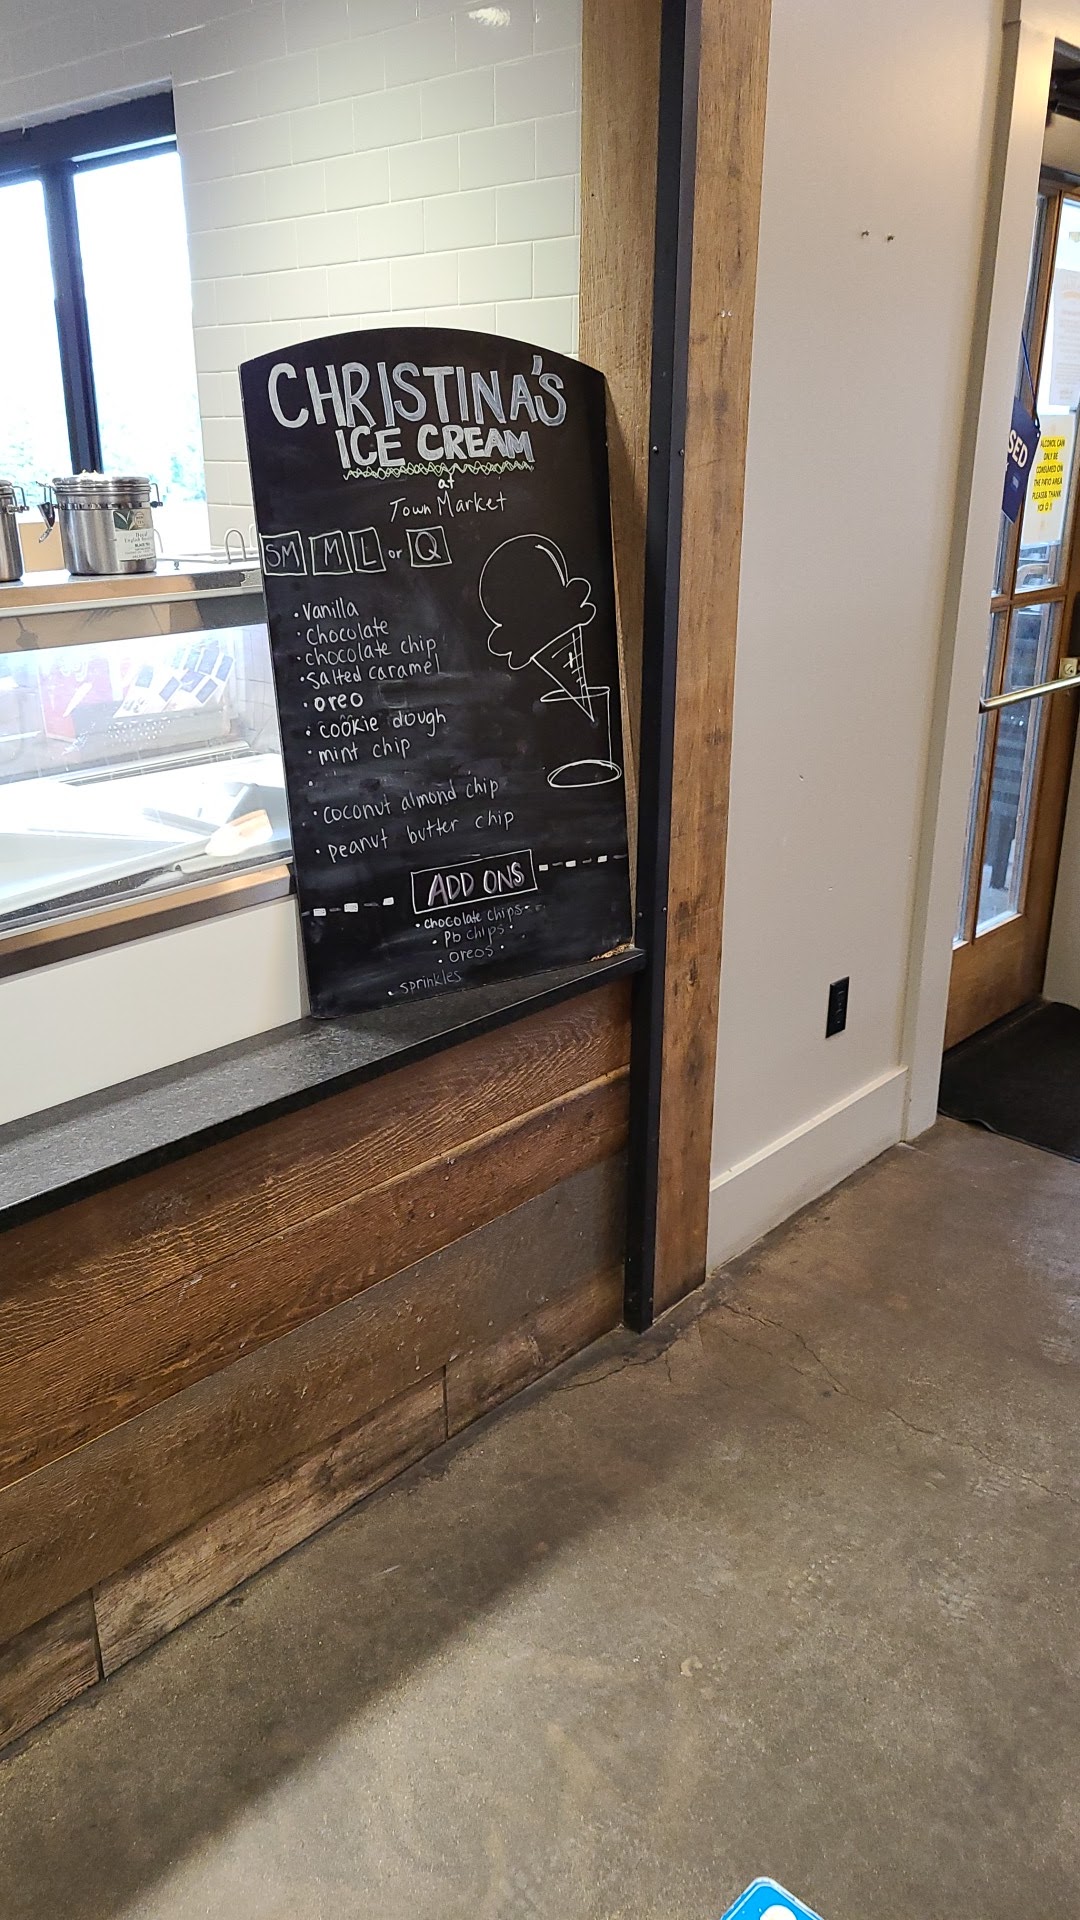 CHRISTINA'S
ICE CREAM
at
Town Market
SM M L or Q
• vanilla
• chocolate
• chocolate chip
• salted caramel
• oreo
• cookie dough
• mint chip
•
• coconut almond chip
• peanut butter chip
ADD ONS
• chocolate chips •
• Pb chips •
• oreos •
• sprinkles
SED
ALCOHOL CAN
ONLY BE
CONSUMED ON
THE PATIO AREA
PLEASE & THANK